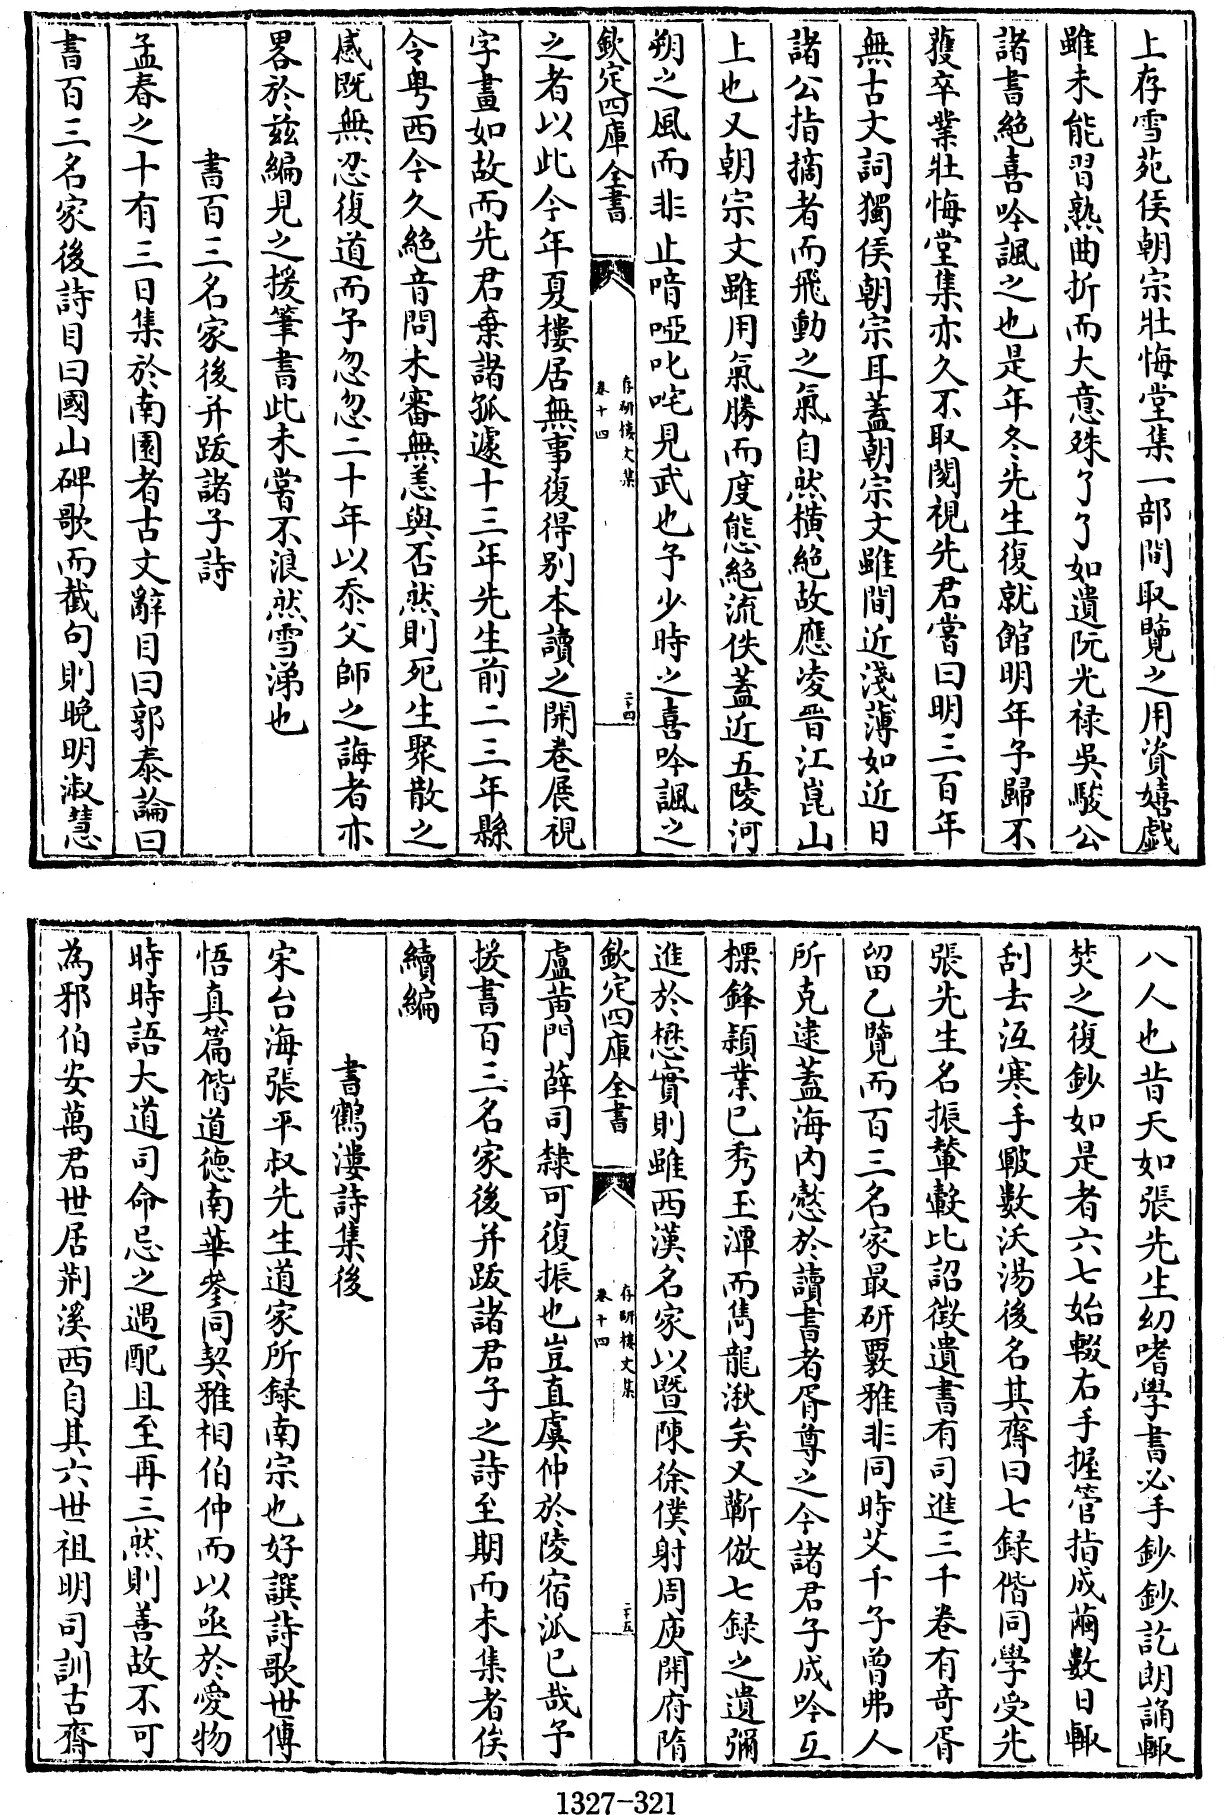 上存雪苑侯朝宗壯悔堂集一部間取覽之用資嬉戲
雖未能習熟曲折而大意殊了了如遺阮光祿吳駿公
諸書絕喜吟諷之也是年冬先生復就館明年予歸不
獲卒業壯悔堂集亦久不取閱視先君嘗曰明三百年
無古文詞獨侯朝宗耳蓋朝宗文雖間近淺薄如近日
諸公指摘者而飛動之氣自然橫絕故應凌晉江崑山
上也又朝宗文雖用氣勝而度態絕流佚蓋近五陵河
朔之風而非止喑啞叱咤見武也予少時之喜吟諷之
欽定四庫全書
存研樓文集
卷十四
二十四
之者以此今年夏樓居無事復得別本讀之開卷展視
字畫如故而先君棄諸孤遽十三年先生前二三年縣
令粵西今久絕音問未審無恙與否然則死生聚散之
感既無忍復道而予忽忽二十年以忝父師之誨者亦
畧於茲編見之援筆書此未嘗不浪然雪涕也
書百三名家後并跋諸子詩
孟春之十有三日集於南園者古文辭目曰郭泰論曰
書百三名家後詩目曰國山碑歌而截句則晚明淑慧
八人也昔天如張先生幼嗜學書必手鈔鈔訖朗誦輒
焚之復鈔如是者六七始輟右手握管指成繭數日輒
刮去沍寒手皸數沃湯後名其齋曰七録偕同學受先
張先生名振輦轂比詔徵遺書有司進三千卷有奇胥
留乙覽而百三名家最研覈雅非同時艾千子曾弗人
所克逮蓋海内憖於讀書者胥尊之今諸君子成吟互
標鋒穎業已秀玉潭而雋龍湫矣又蘄倣七録之遺彌
進於懋實則雖西漢名家以暨陳徐僕射周庾開府隋
欽定四庫全書
存研樓文集
卷十四
二十五
盧黃門薛司隸可復振也豈直虞仲於陵宿泒已哉予
援書百三名家後并跋諸君子之詩至期而未集者俟
續編
書鶴漊詩集後
宋台海張平叔先生道家所録南宗也好譔詩歌世傳
悟真篇偕道徳南華參同契雅相伯仲而以亟於愛物
時時語大道司命忌之遇配且至再三然則善故不可
為邪伯安萬君世居荆溪西自其六世祖明司訓古齋
1327-321